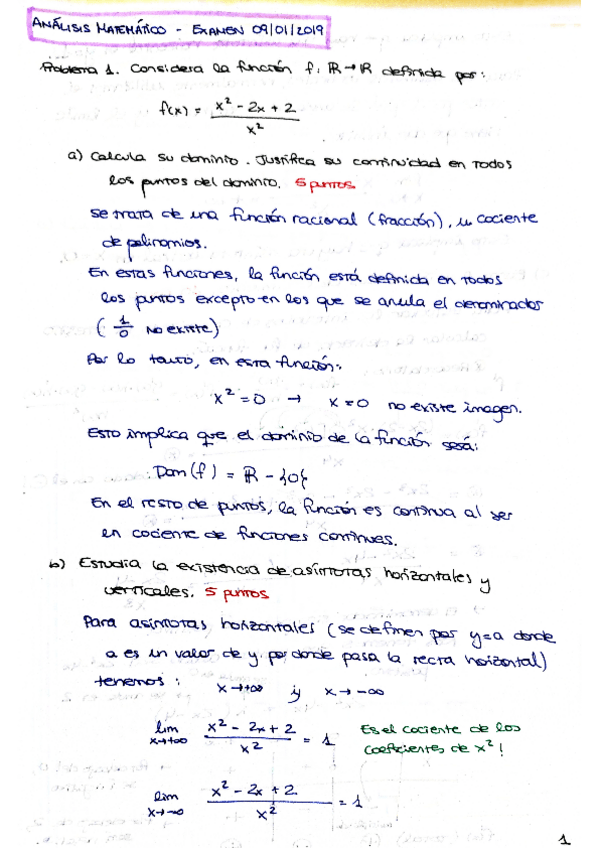 ANÁLISIS MATEMÁTICO - EXAMEN 09/01/2019
Problema 1. Considera la función f: ℝ→ℝ definida por:
f(x) = (x² - 2x + 2)/x²
a) Calcula su dominio. Justifica su continuidad en todos
los puntos del dominio. 5 puntos
Se trata de una función racional (fracción), un cociente
de polinomios.
En estas funciones, la función está definida en todos
los puntos excepto en los que se anula el denominador
(1/0 no existe)
Por lo tanto, en esta función:
x² = 0 → x = 0 no existe imagen.
Esto implica que el dominio de la función será:
Dom(f) = ℝ - {0}
En el resto de puntos, la función es continua al ser
un cociente de funciones continuas.
b) Estudia la existencia de asíntotas horizontales y
verticales. 5 puntos
Para asíntotas horizontales (se definen por y=a donde
a es un valor de y por donde pasa la recta horizontal)
tenemos: x→+∞ y x→-∞
lim x→+∞ (x² - 2x + 2)/x² = 1 Es el cociente de los
coeficientes de x²!
lim x→-∞ (x² - 2x + 2)/x² = 1
1